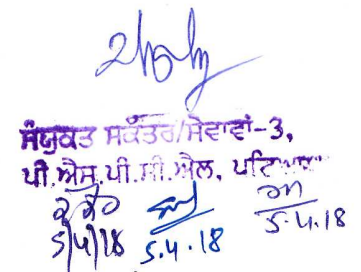 ਸੰਯੁਕਤ ਸਕੱਤਰ/ਸੇਵਾਵਾਂ-3,
ਪੀ.ਐਸ.ਪੀ.ਸੀ.ਐਲ, ਪਟਿਆਲਾ
5/4/18 5.4.18 5.4.18